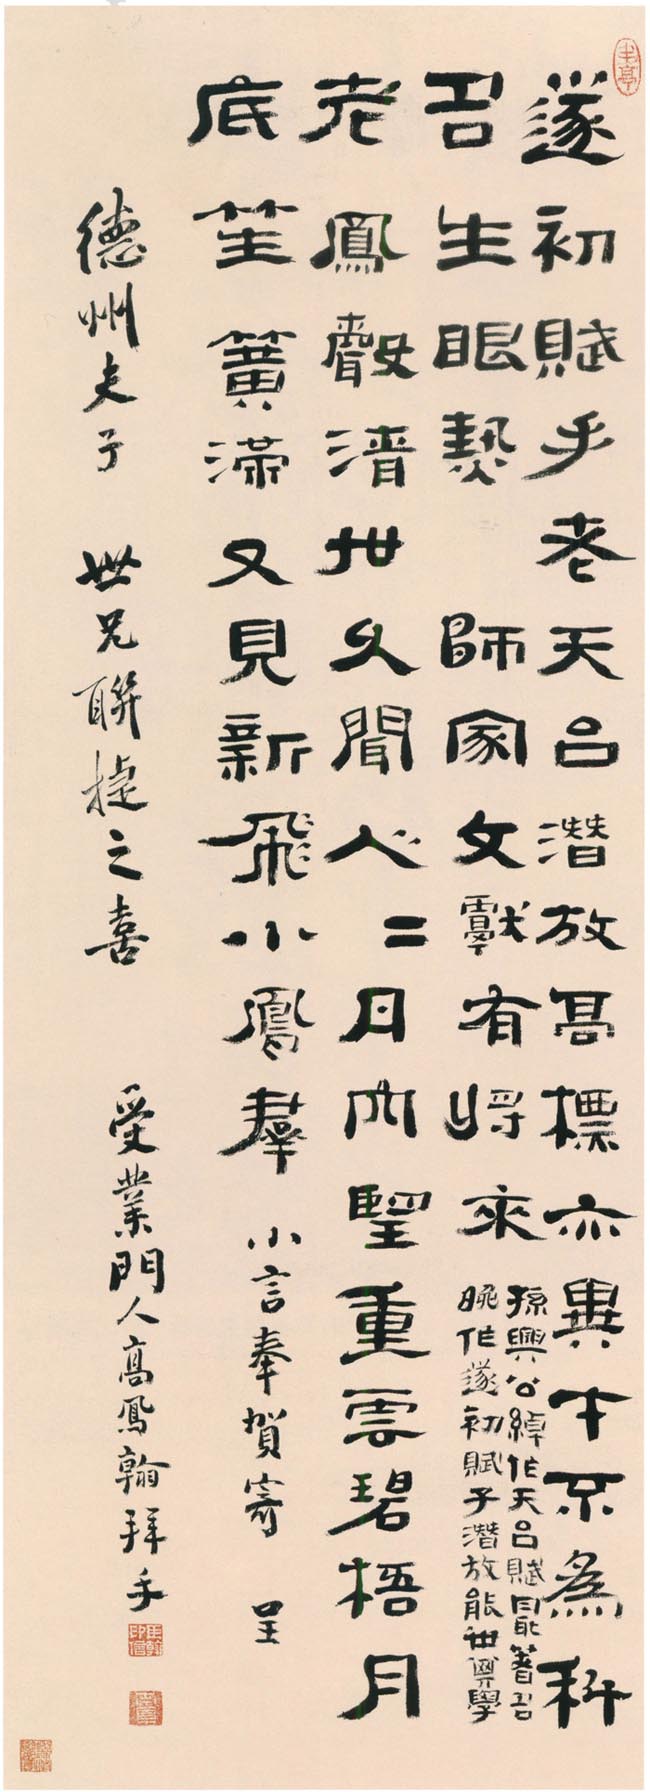 遂初賦手老天台潛放高標亦異才不為科
名生眼熱 師家文獻有將來
孫興公綽作天台賦最著名
晚作遂初賦子潛放能世其學
老鳳聲清世久聞人二日內望重雲碧梧月
底笙簧滿又見新飛小鳳羣 小言奉賀寄 呈
德州夫子 世兄聯捷之喜 受業門人高鳳翰拜手